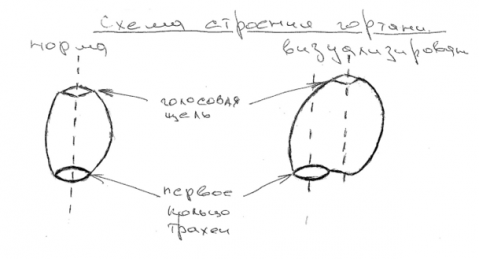 схема строения гортани.
норма
визуализирован
голосовая
щель
первое
кольцо
трахеи